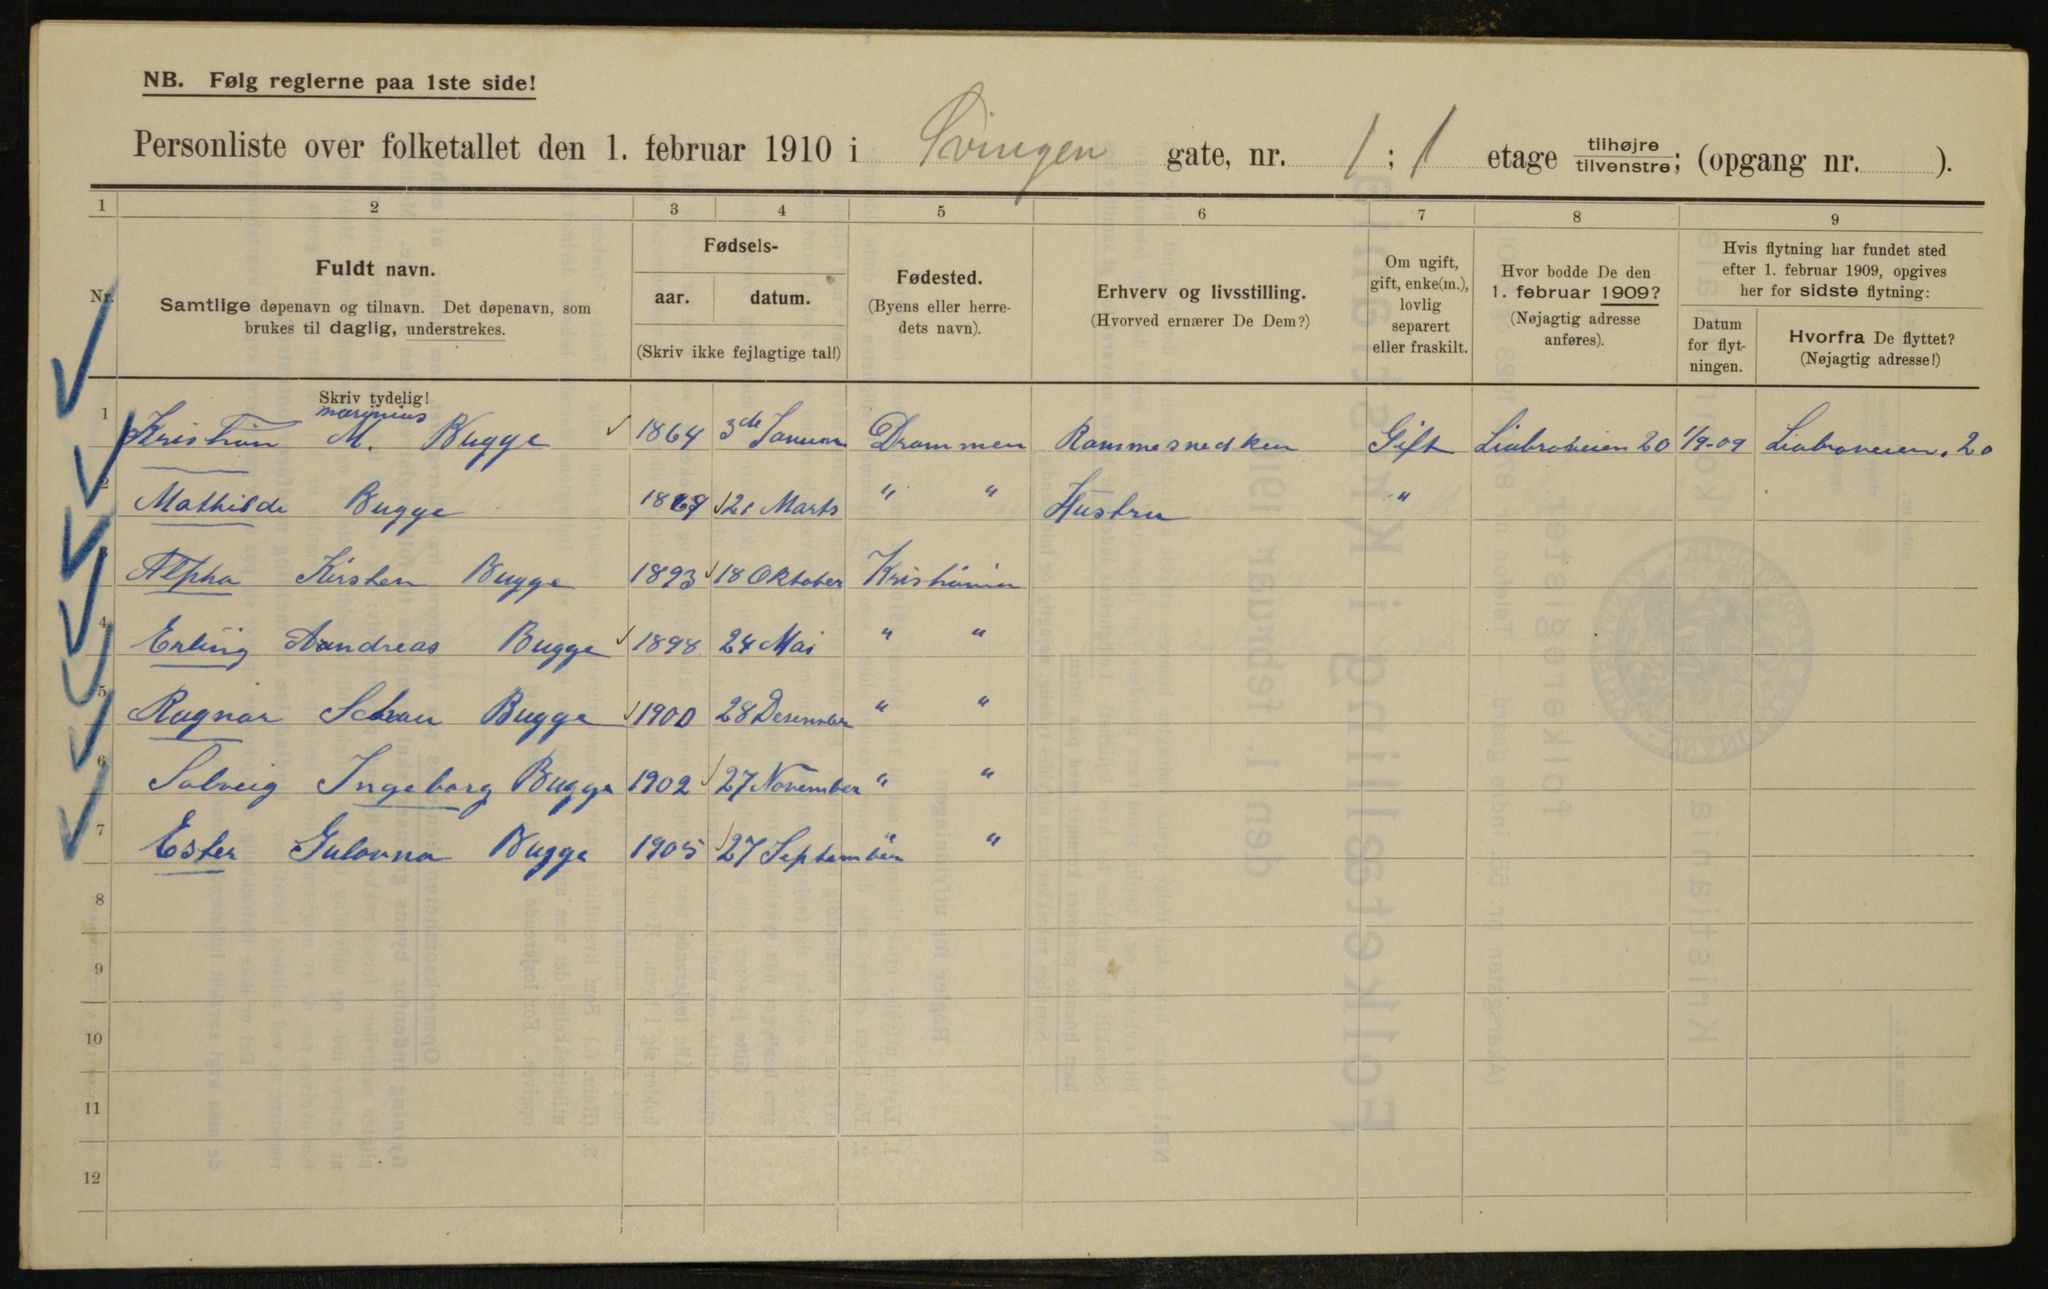 NB. Følg reglerne paa 1ste side!
Personliste over folketallet den 1. februar 1910 i Svingen gate, nr. 1 ; 1 etage tilhøjre tilvenstre; (opgang nr. ).
1 2 3 4 5 6 7 8 9
Nr.
Fuldt navn.
Samtlige døpenavn og tilnavn. Det døpenavn, som
brukes til daglig, understrekes.
Skriv tydelig!
Fødsels-
aar. datum.
(Skriv ikke fejlagtige tal!)
Fødested.
(Byens eller herre-
dets navn).
Erhverv og livsstilling.
(Hvorved ernærer De Dem?)
Om ugift,
gift, enke(m.),
lovlig
separert
eller fraskilt.
Hvor bodde De den
1. februar 1909?
(Nøjagtig adresse
anføres).
Hvis flytning har fundet sted
efter 1. februar 1909, opgives
her for sidste flytning:
Datum
for flyt-
ningen.
Hvorfra De flyttet?
(Nøjagtig adresse!)
marinius
1 Kristian M. Bugge 1864 3de Januar Drammen Rammesnedker Gift Liabroveien 20 1/9-09 Liabroveien. 20
2 Mathilde Bugge 21 Marts " " Hustru "
3 Alpha Kirsten Bugge 1893 18 Oktober Kristiania
4 Erling Andreas Bugge 1898 24 Mai " "
5 Ragnar Bugge 1900 28 Desember " "
6 Solveig Ingeborg Bugge 1902 27 November " "
7 Ester Bugge 1905 27 September " "
8
9
10
11
12